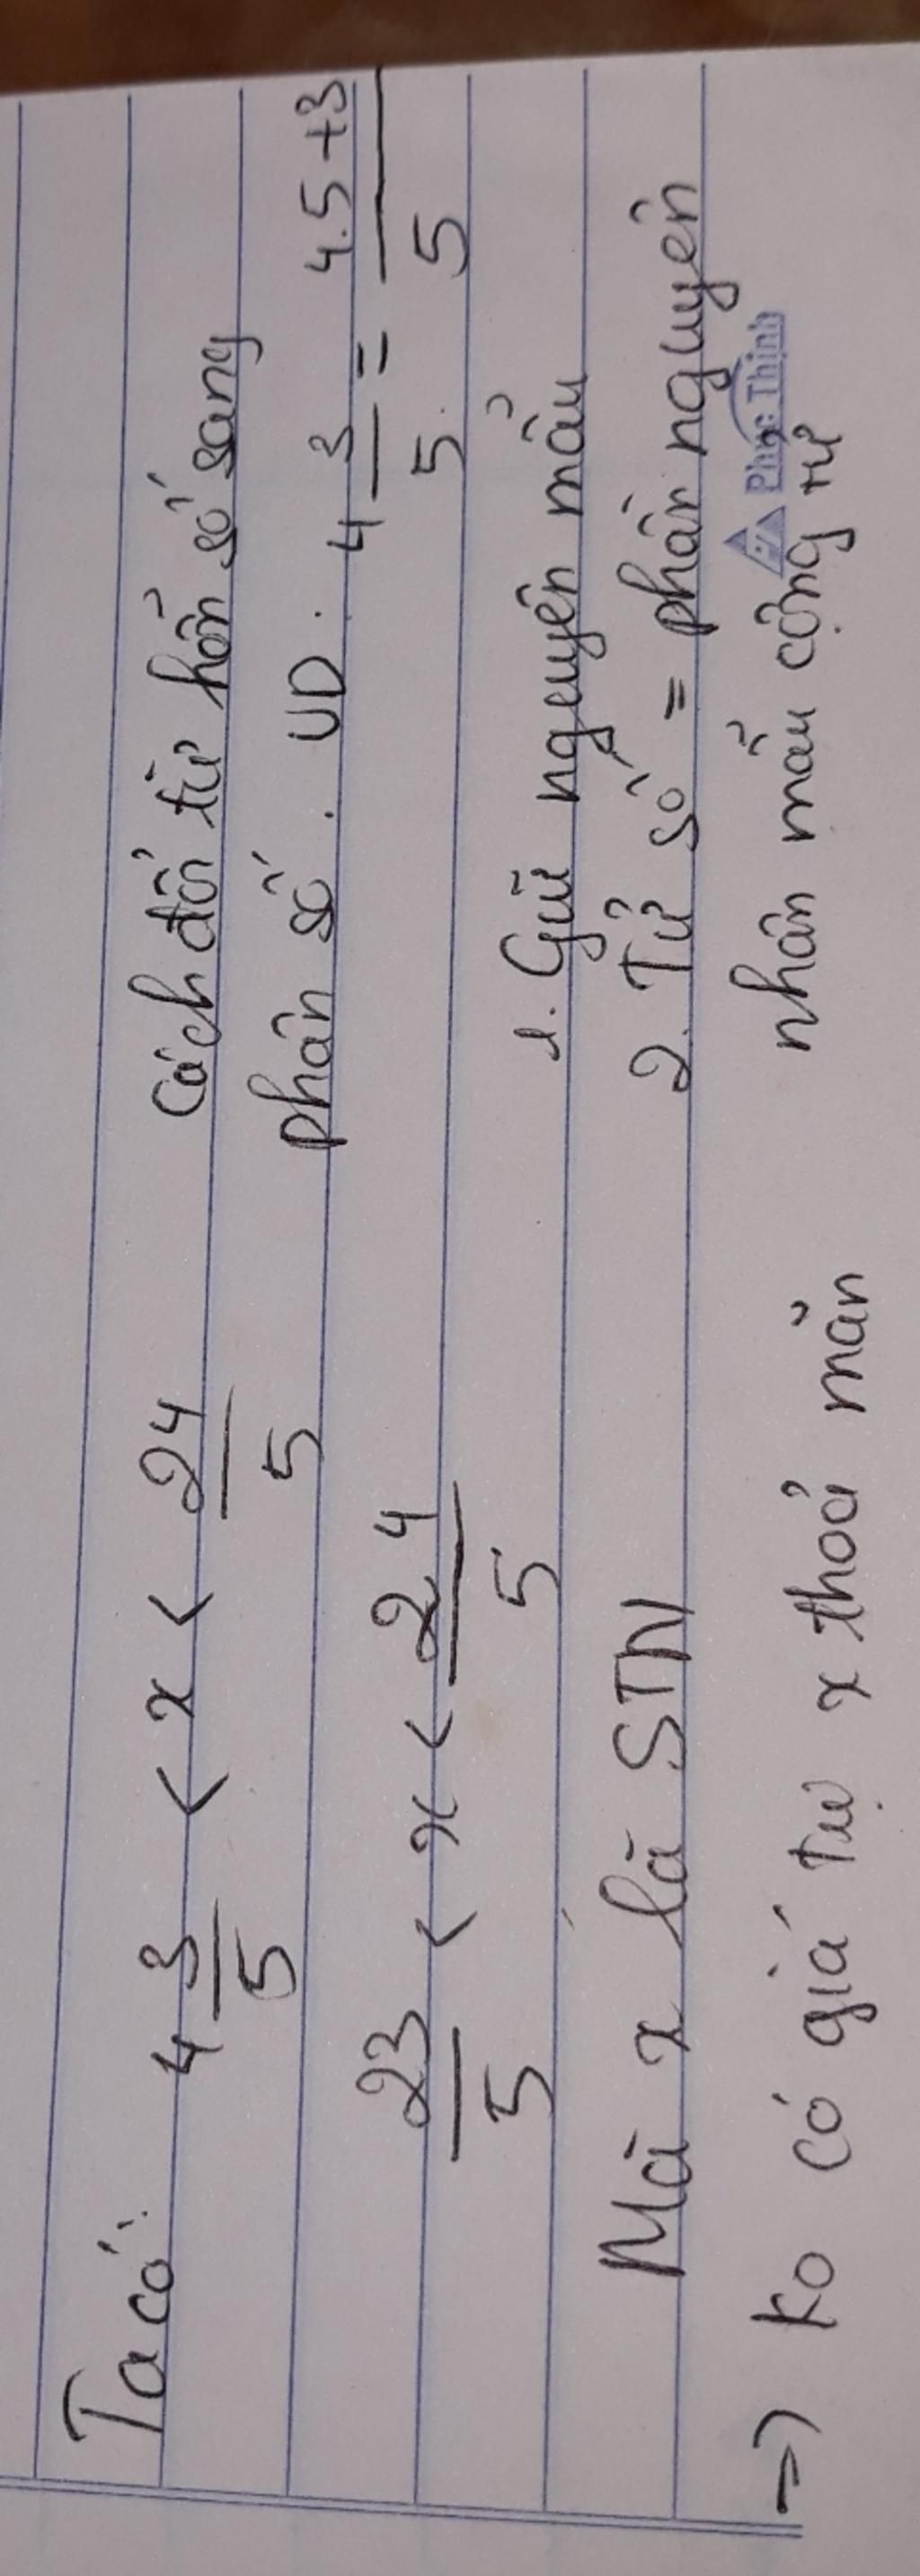 Ta có: 4 3/5 < x < 24/5
23/5 < x < 24/5
Mà x là STN
=) ko có giá tự x thoả mãn
Cách đổi từ hỗn số sang
phân số. VD. 4 3/5 = 4.5+3/5
1. Giữ nguyên mẫu
2. Tử số = phần nguyên
nhân mẫu cộng tử
Phúc Thịnh